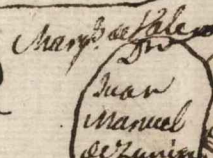 Marq.s de Vale
Dn
Juan
Manuel
de Zunig